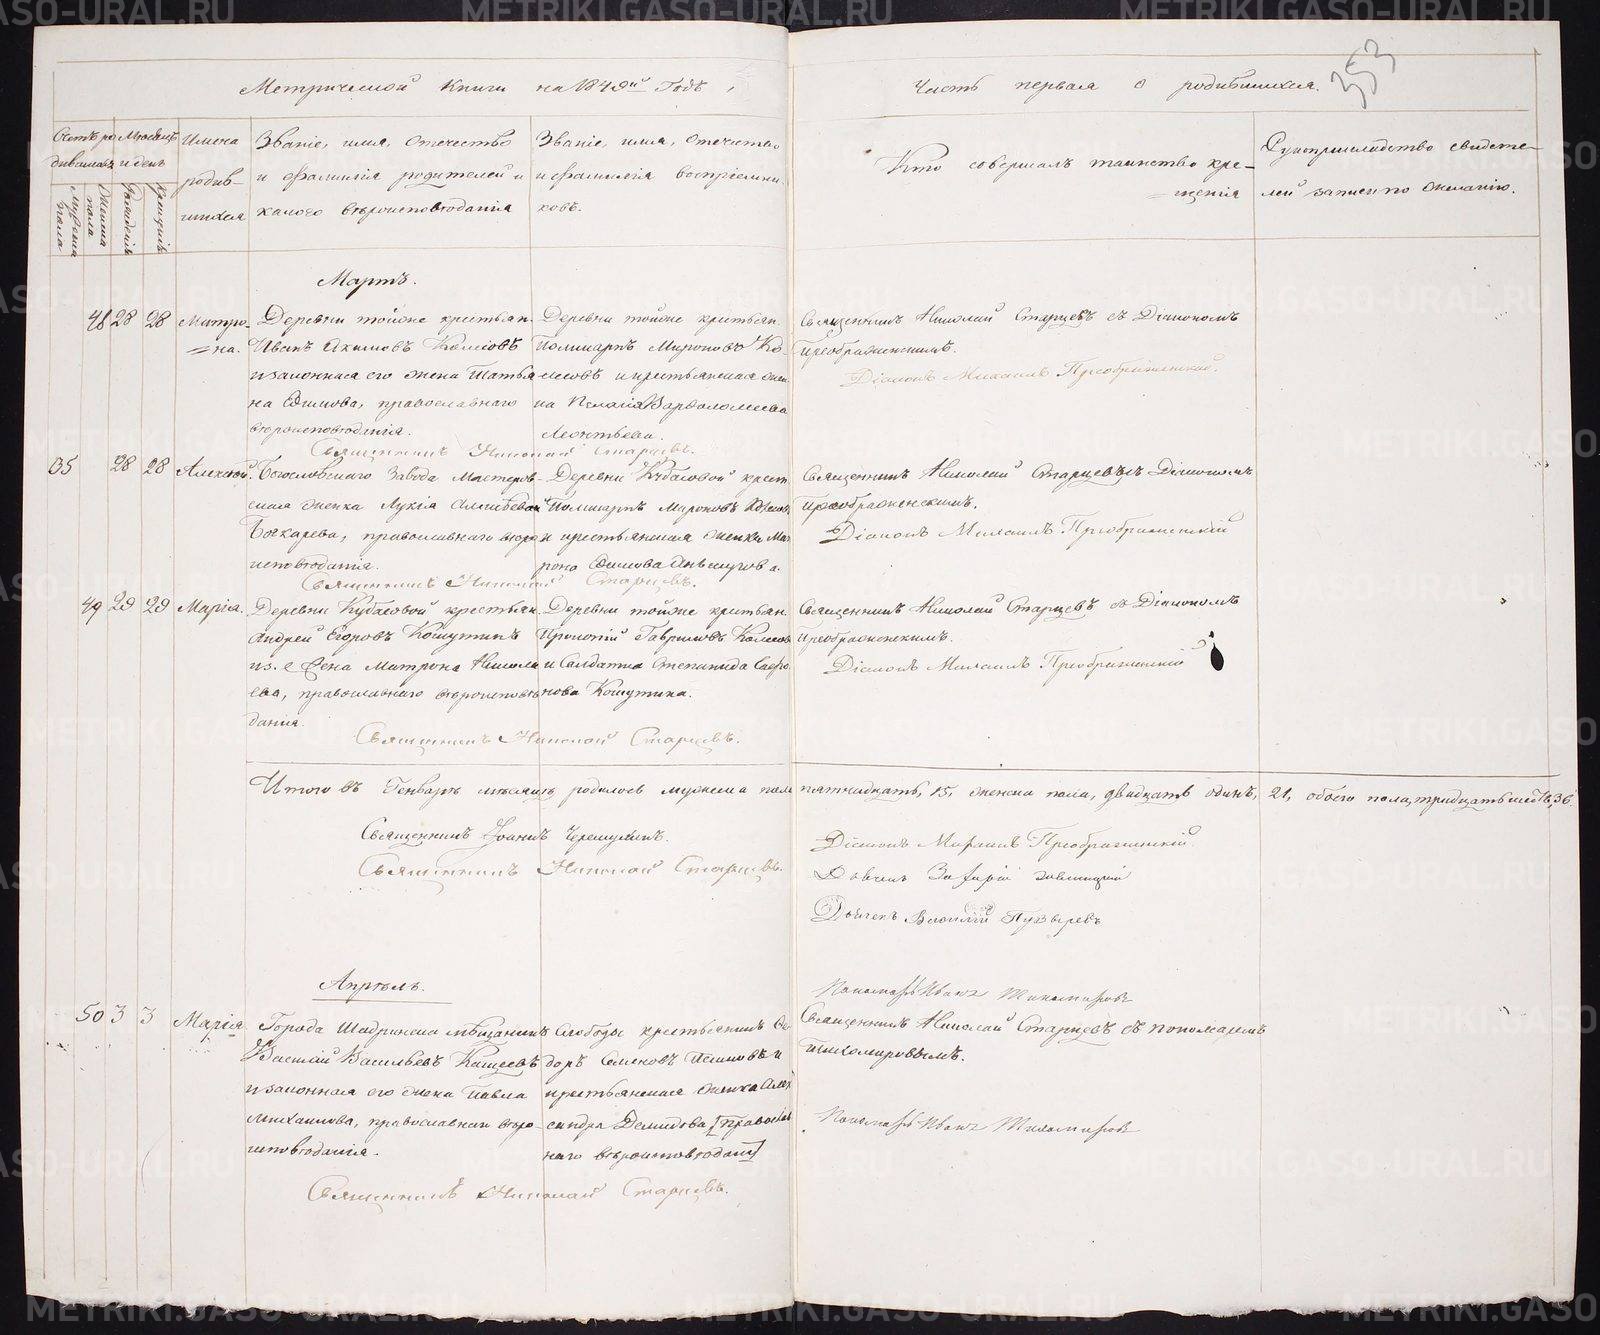 Метрической Книги на 1849й Годъ,
Часть первая о родившихся.
353
Счетъ родившихся
Мужеска пола
Женска пола
Месяцъ и день
Рожденія
Крещенія
Имена родившихся
Званіе, имя, отечество
и фамилія родителей и
какого вѣроисповѣданія
Званіе, имя, отечество
и фамилія воспріемни-
ковъ.
Кто совершалъ таинство кре-
=щенія
Рукоприкладство свидете-
лей записи по желанію.
Мартъ.
48 28 28 Матро-
=на.
Деревни тойже крестьян.
Иванъ Акимовъ Колесовъ
и законная его жена Татья
на Ефимова, православнаго
вѣроисповѣданія.
Деревни тойже крестьян.
Поликарпъ Мироновъ Ко-
лесовъ и крестьянская жен-
ка Пелагія Варфоломеева
Леонтьева.
Священникъ Николай Старцевъ.
Священникъ Николай Старцевъ съ Діакономъ
Преображенскимъ.
Діаконъ Михаилъ Преображенскій.
35 28 28 Алексѣй
Богословскаго Завода Мастеров-
ская женка Лукія
Бочкарева, православнаго вѣро
исповѣданія.
Деревни Кубасовой крест
Поликарпъ Мироновъ Колесовъ
и крестьянская женка Мат
рона Ефимова
Священникъ Николай Старцевъ.
Священникъ Николай Старцевъ съ Діакономъ
Преображенскимъ.
Діаконъ Михаилъ Преображенскій
49 29 29 Марія.
Деревни Кубасовой крестьян.
Андрей Егоровъ Кокшутинъ
из. е жена Матрона Никола
ева, православнаго вѣроисповѣ
данія.
Деревни тойже крестьян.
Прокопій Гавриловъ Колесовъ
и Солдатка Степанида Сафро
нова Кокшутина.
Священникъ Николай Старцевъ.
Священникъ Николай Старцевъ съ Діакономъ
Преображенскимъ.
Діаконъ Михаилъ Преображенскій
Итого въ Генварѣ мѣсяцѣ родилось мужеска пола пятнадцать, 15, женска пола, двадцать одинъ, 21, обоего пола, тридцать шесть, 36.
Священникъ Іоаннъ Черемухинъ.
Священникъ Николай Старцевъ.
Діаконъ Михаилъ Преображенскій
Дьячекъ Василій Пузыревъ
Пономарь Иванъ Тихомировъ
Апрѣль.
50 3 3 Марія
Города Шадринска мѣщанинъ
Василій Васильевъ Кащеевъ
и законная его жена Павла
Михаилова, православнаго вѣро-
исповѣданія.
Слободы крестьянинъ Фе
доръ Семеновъ и
крестьянская женка Алек
сандра Демидова [правосла
внаго вѣроисповѣдан]
Священникъ Николай Старцевъ.
Священникъ Николай Старцевъ съ пономаремъ
Тихомировымъ.
Пономарь Иванъ Тихомировъ
METRIKI.GASO-URAL.RU